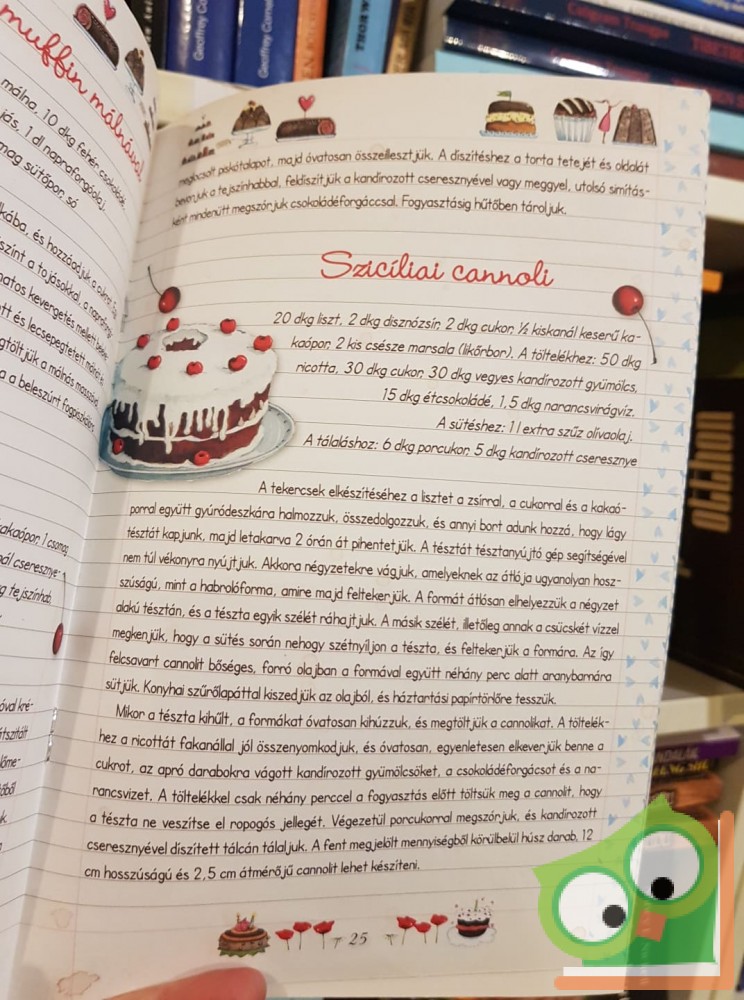 muffin málnával
málna, 10 dkg fehér csokoládé,
jás, 1 dl napraforgóolaj,
mag sütőpor, só
kába, és hozzáadjuk a cukrot
szint a tojásokkal, a napraforgó
matos kevergetés mellett
tt és lecsepegtetett málnát
gtöltjük a málnás masszával
a a beleszúrt fogpiszkálóra
kakaópor, 1 csomag
nál cseresznye-
g tejszínhab,
óval kré-
megkocsolt piskótalapot, majd óvatosan összeillesztjük. A díszítéshez a torta tetejét és oldalát
bevonjuk a tejszínhabbal, feldíszítjük a kandírozott cseresznyével vagy meggyel, utolsó simítás-
ként mindenütt megszórjuk csokoládéforgáccsal. Fogyasztásig hűtőben tároljuk.
Szicíliai cannoli
20 dkg liszt, 2 dkg disznózsír, 2 dkg cukor, ½ kiskanál keserű ka-
kaópor, 2 kis csésze marsala (likőrbor). A töltelékhez: 50 dkg
ricotta, 30 dkg cukor, 30 dkg vegyes kandírozott gyümölcs,
15 dkg étcsokoládé, 1,5 dkg narancsvirágvíz.
A sütéshez: 1 l extra szűz olívaolaj.
A tálaláshoz: 6 dkg porcukor, 5 dkg kandírozott cseresznye
A tekercsek elkészítéséhez a lisztet a zsírral, a cukorral és a kakaó-
porral együtt gyúródeszkára halmozzuk, összedolgozzuk, és annyi bort adunk hozzá, hogy lágy
tésztát kapjunk, majd letakarva 2 órán át pihentetjük. A tésztát tésztanyújtó gép segítségével
nem túl vékonyra nyújtjuk. Akkora négyzetekre vágjuk, amelyeknek az átlója ugyanolyan hosz-
szúságú, mint a habrolóforma, amire majd feltekerjük. A formát átlósan elhelyezzük a négyzet
alakú tésztán, és a tészta egyik szélét ráhajtjuk. A másik szélét, illetőleg annak a csücskét vízzel
megkenjük, hogy a sütés során nehogy szétnyíljon a tészta, és feltekerjük a formára. Az így
felcsavart cannolit bőséges, forró olajban a formával együtt néhány perc alatt aranybarnára
sütjük. Konyhai szűrőlapáttal kiszedjük az olajból, és háztartási papírtörlőre tesszük.
Mikor a tészta kihűlt, a formákat óvatosan kihúzzuk, és megtöltjük a cannolikat. A töltelék-
hez a ricottát fakanállal jól összenyomkodjuk, és óvatosan, egyenletesen elkeverjük benne a
cukrot, az apró darabokra vágott kandírozott gyümölcsöket, a csokoládéforgácsot és a na-
rancsvizet. A töltelékkel csak néhány perccel a fogyasztás előtt töltsük meg a cannolit, hogy
a tészta ne veszítse el ropogós jellegét. Végezetül porcukorral megszórjuk, és kandírozott
cseresznyével díszített tálcán tálaljuk. A fent megjelölt mennyiségből körülbelül húsz darab, 12
cm hosszúságú és 2,5 cm átmérőjű cannolit lehet készíteni.
25